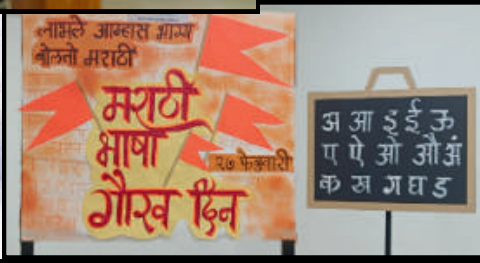 लाभले आम्हास भाग्य
बोलतो मराठी
मराठी
भाषा
गौरव दिन
२७ फेब्रुवारी
अ आ इ ई ऊ
ए ऐ ओ औ अं
क ख ग घ ड